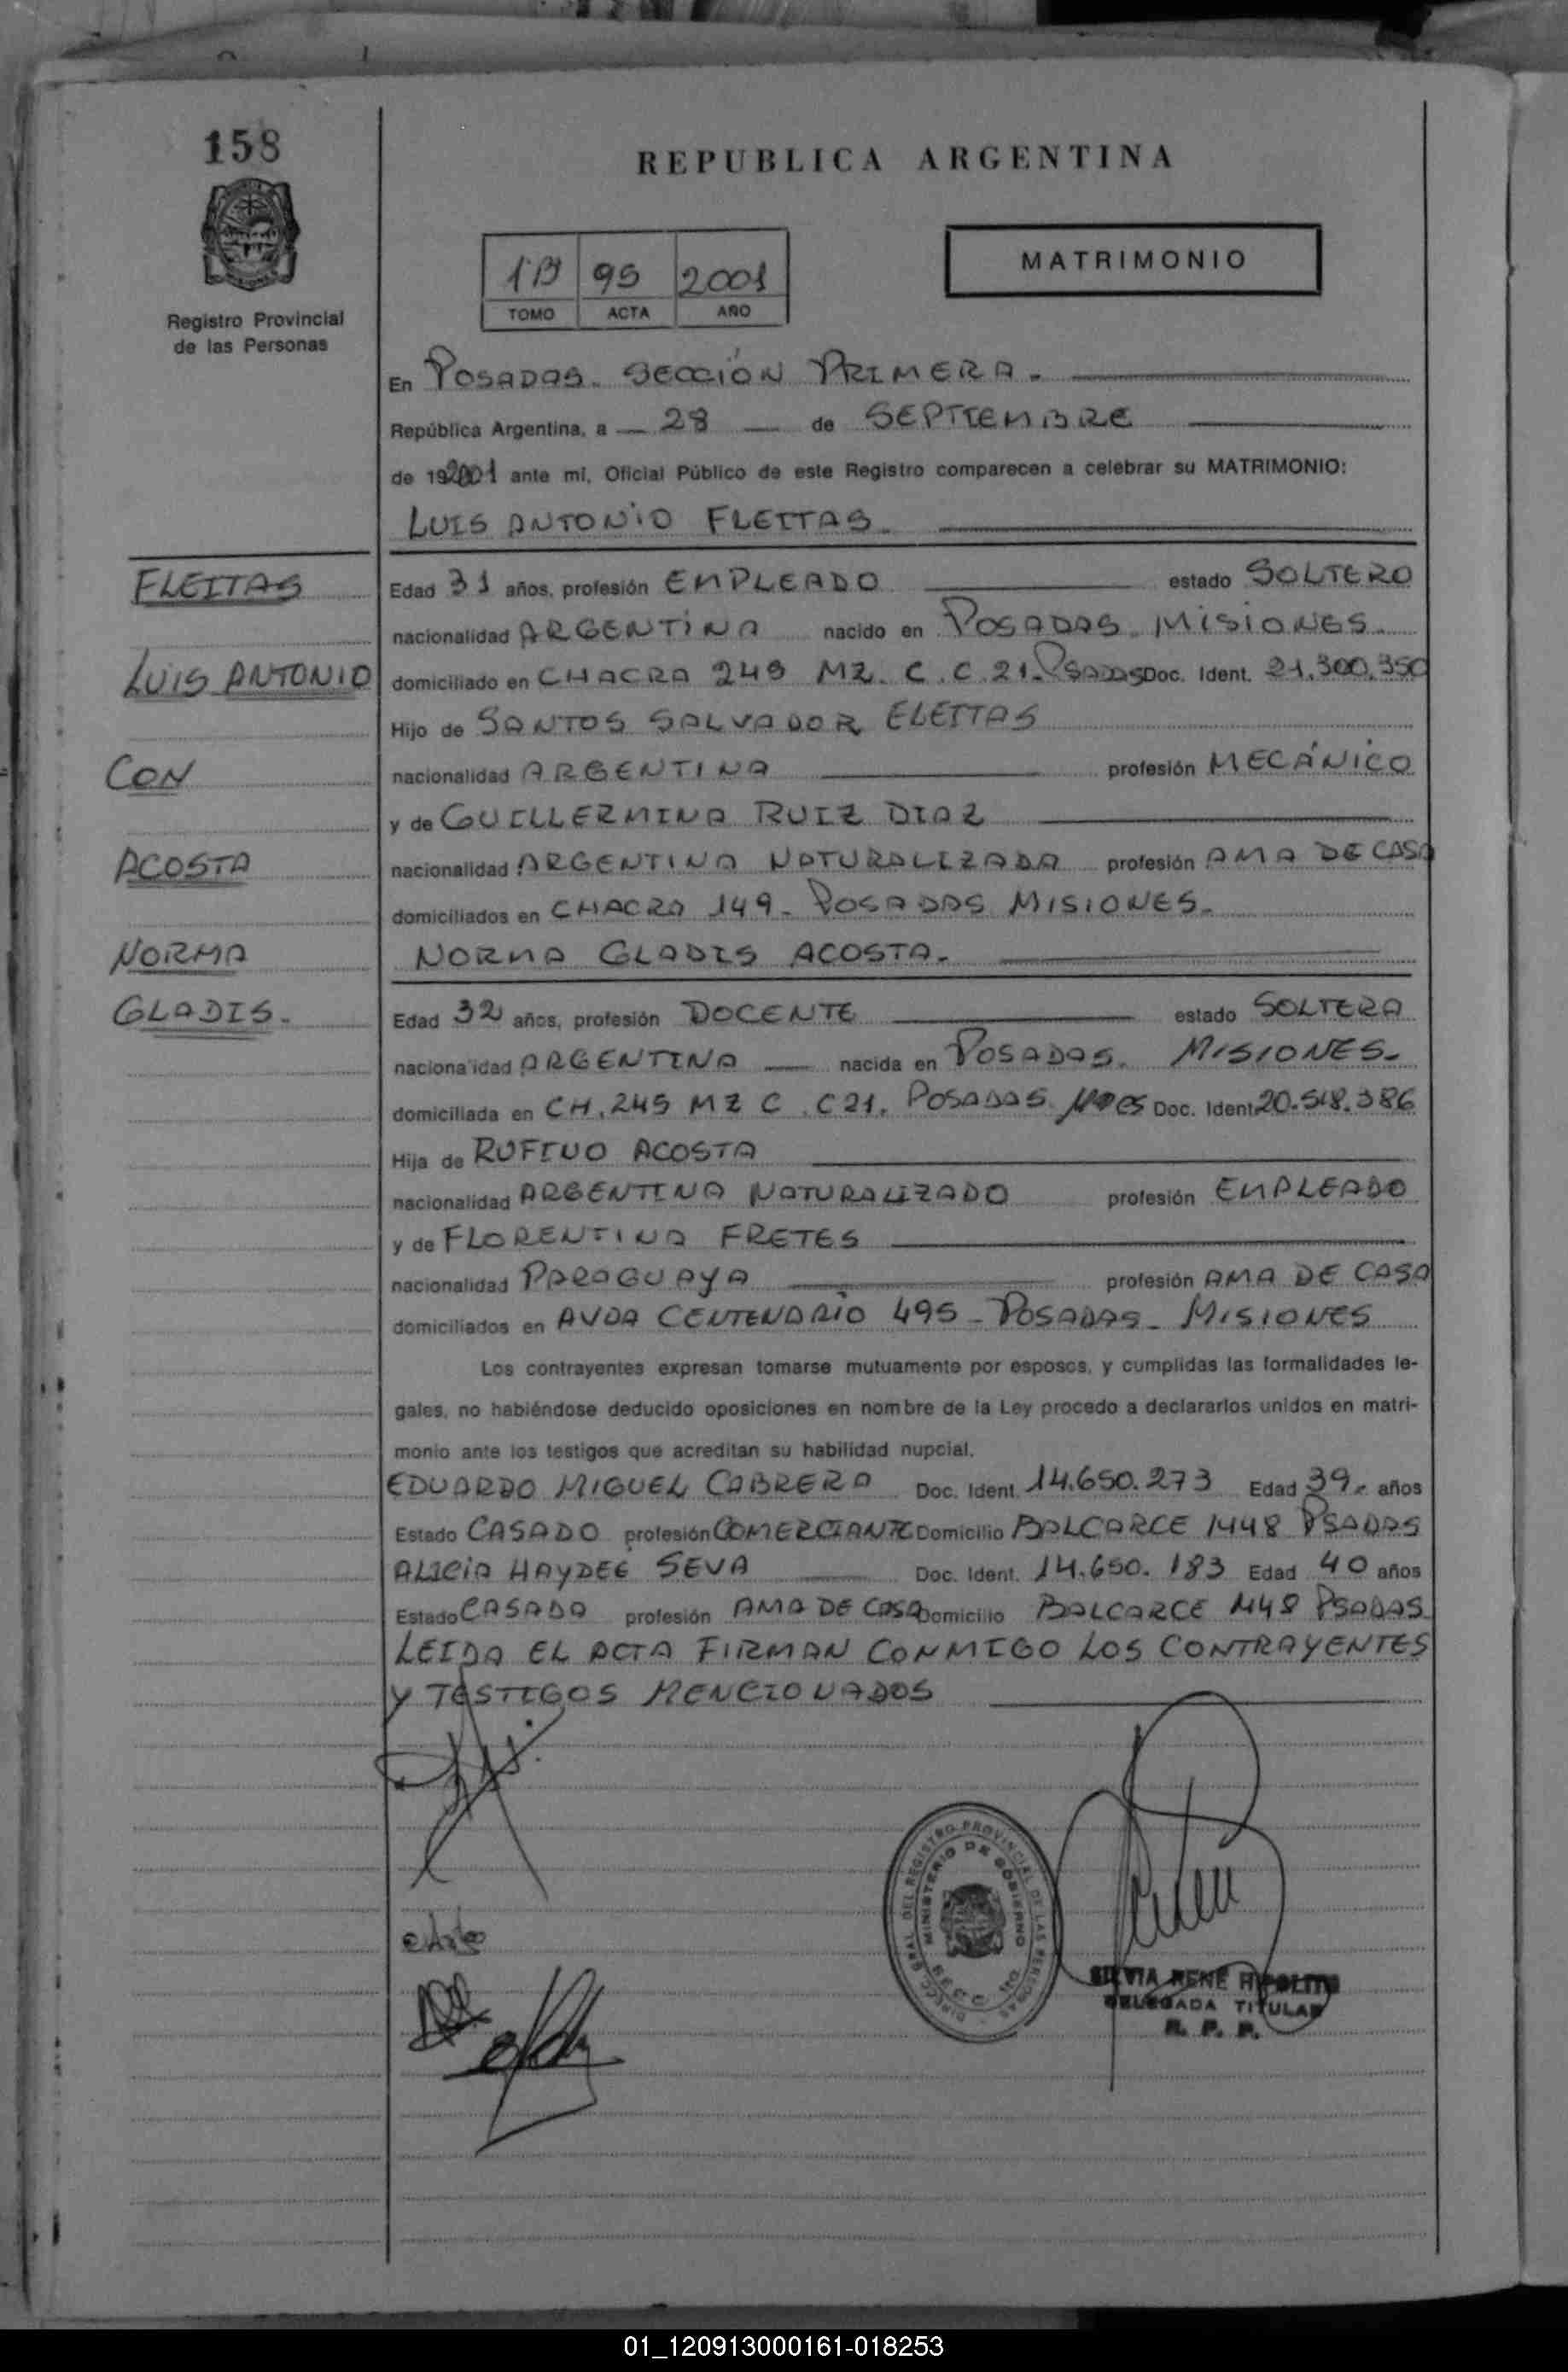 158
REPUBLICA ARGENTINA
MATRIMONIO
Registro Provincial
de las Personas
1B 95 2001
TOMO ACTA AÑO
En POSADAS. SECCIÓN PRIMERA.
República Argentina, a 28 de SEPTIEMBRE
de 192001 ante mí, Oficial Público de este Registro comparecen a celebrar su MATRIMONIO:
LUIS ANTONIO FLEITAS
FLEITAS
LUIS ANTONIO
CON
ACOSTA
NORMA
GLADIS.
Edad 31 años, profesión EMPLEADO estado SOLTERO
nacionalidad ARGENTINA nacido en POSADAS. MISIONES.
domiciliado en CHACRA 249 MZ. C. C. 21. PSADAS Doc. Ident. 21.300.350
Hijo de SANTOS SALVADOR FLEITAS
nacionalidad ARGENTINA profesión MECÁNICO
y de GUILLERMINA RUIZ DIAZ
nacionalidad ARGENTINA NATURALIZADA profesión AMA DE CASA
domiciliados en CHACRA 149. POSADAS MISIONES.
NORMA GLADIS ACOSTA.
Edad 32 años, profesión DOCENTE estado SOLTERA
nacionalidad ARGENTINA nacida en POSADAS. MISIONES.
domiciliada en CH. 249 MZ C. C21. POSADAS Doc. Ident. 20.518.386
Hija de RUFINO ACOSTA
nacionalidad ARGENTINA NATURALIZADO profesión EMPLEADO
y de FLORENTINA FRETES
nacionalidad PARAGUAYA profesión AMA DE CASA
domiciliados en AVDA CENTENARIO 495 - POSADAS - MISIONES
Los contrayentes expresan tomarse mutuamente por esposos, y cumplidas las formalidades le-
gales, no habiéndose deducido oposiciones en nombre de la Ley procedo a declararlos unidos en matri-
monio ante los testigos que acreditan su habilidad nupcial.
EDUARDO MIGUEL CABRERA Doc. Ident. 14.650.273 Edad 39. años
Estado CASADO profesión COMERCIANTE Domicilio BALCARCE 1448 PSADAS
ALICIA HAYDEE SEVA Doc. Ident. 14.650.183 Edad 40 años
Estado CASADA profesión AMA DE CASA Domicilio BALCARCE 1448 PSADAS
LEIDA EL ACTA FIRMAN CONMIGO LOS CONTRAYENTES
Y TESTIGOS MENCIONADOS
DIRECC. GRAL. DEL REGISTRO PROVINCIAL DE LAS PERSONAS
MINISTERIO DE GOBIERNO
SILVIA RENE HIPOLITO
DELEGADA TITULAR
R. P. P.
01_120913000161-018253